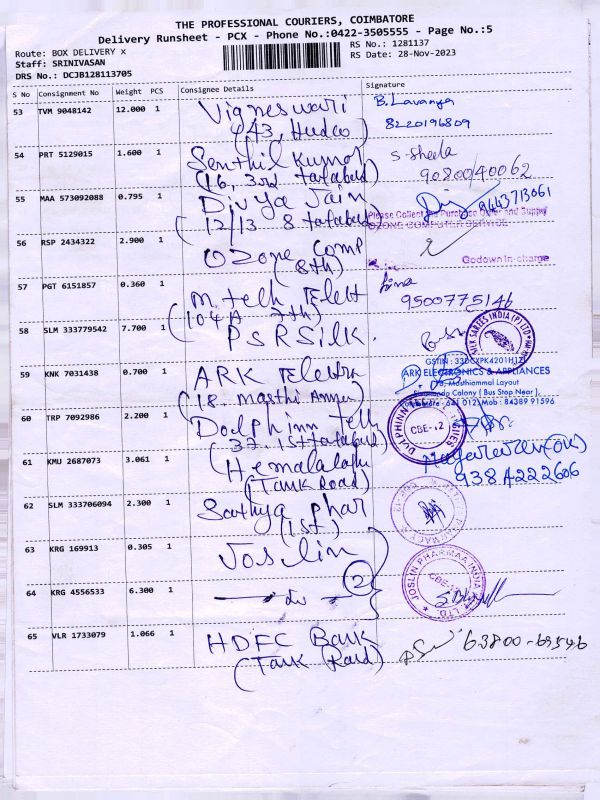 THE PROFESSIONAL COURIERS, COIMBATORE
Delivery Runsheet - PCX - Phone No.:0422-3505555 - Page No.:5
Route: BOX DELIVERY x
RS No.: 1281137
Staff: SRINIVASAN
RS Date: 28-Nov-2023
DRS No.: DCJB128113705
S No Consignment No Weight PCS Consignee Details Signature
53 TVM 9048142 12.000 1 Vigneswari B. Lavanya
(43, Hudco) 8220196809
54 PRT 5129015 1.600 1 Senthil Kumar S. Sheela
(16, 3rd tatabad) 9080040062
55 MAA 573092088 0.795 1 Divya Jain 9443713061
(12/13 8 tatabad) Please Collect the Purchase Order and Supply
OZONE COMPUTER SERVICE
56 RSP 2434322 2.900 1 Ozone Comp
(8th) Godown In-charge
57 PGT 6151857 0.360 1 M. tech Elect
(104 A 7th) 9500775146
58 SLM 333779542 7.700 1 PSR Silk.
SILK SAREES INDIA (P) LTD
59 KNK 7031438 0.700 1 ARK Elektra
ARK ELECTRONICS & APPLIANCES
(18. Masthi Amman) Masthiammal Layout
Colony ( Bus Stop Near ),
Mob: 84389 91596
60 TRP 7092986 2.200 1 Dolphinn Telly
(32. 1st tatabad) CBE-12
61 KMU 2687073 3.061 1 Hemalatha
(Tank Road) 9384222606
62 SLM 333706094 2.300 1 Sathya Phar
(1st) PHARMACY
63 KRG 169913 0.305 1 Joslin
JOSLIN PHARMAA INDIA LTD.
64 KRG 4556533 6.300 1 — do — 2
65 VLR 1733079 1.066 1 HDFC Bank 63800-69546
(Tank Road)